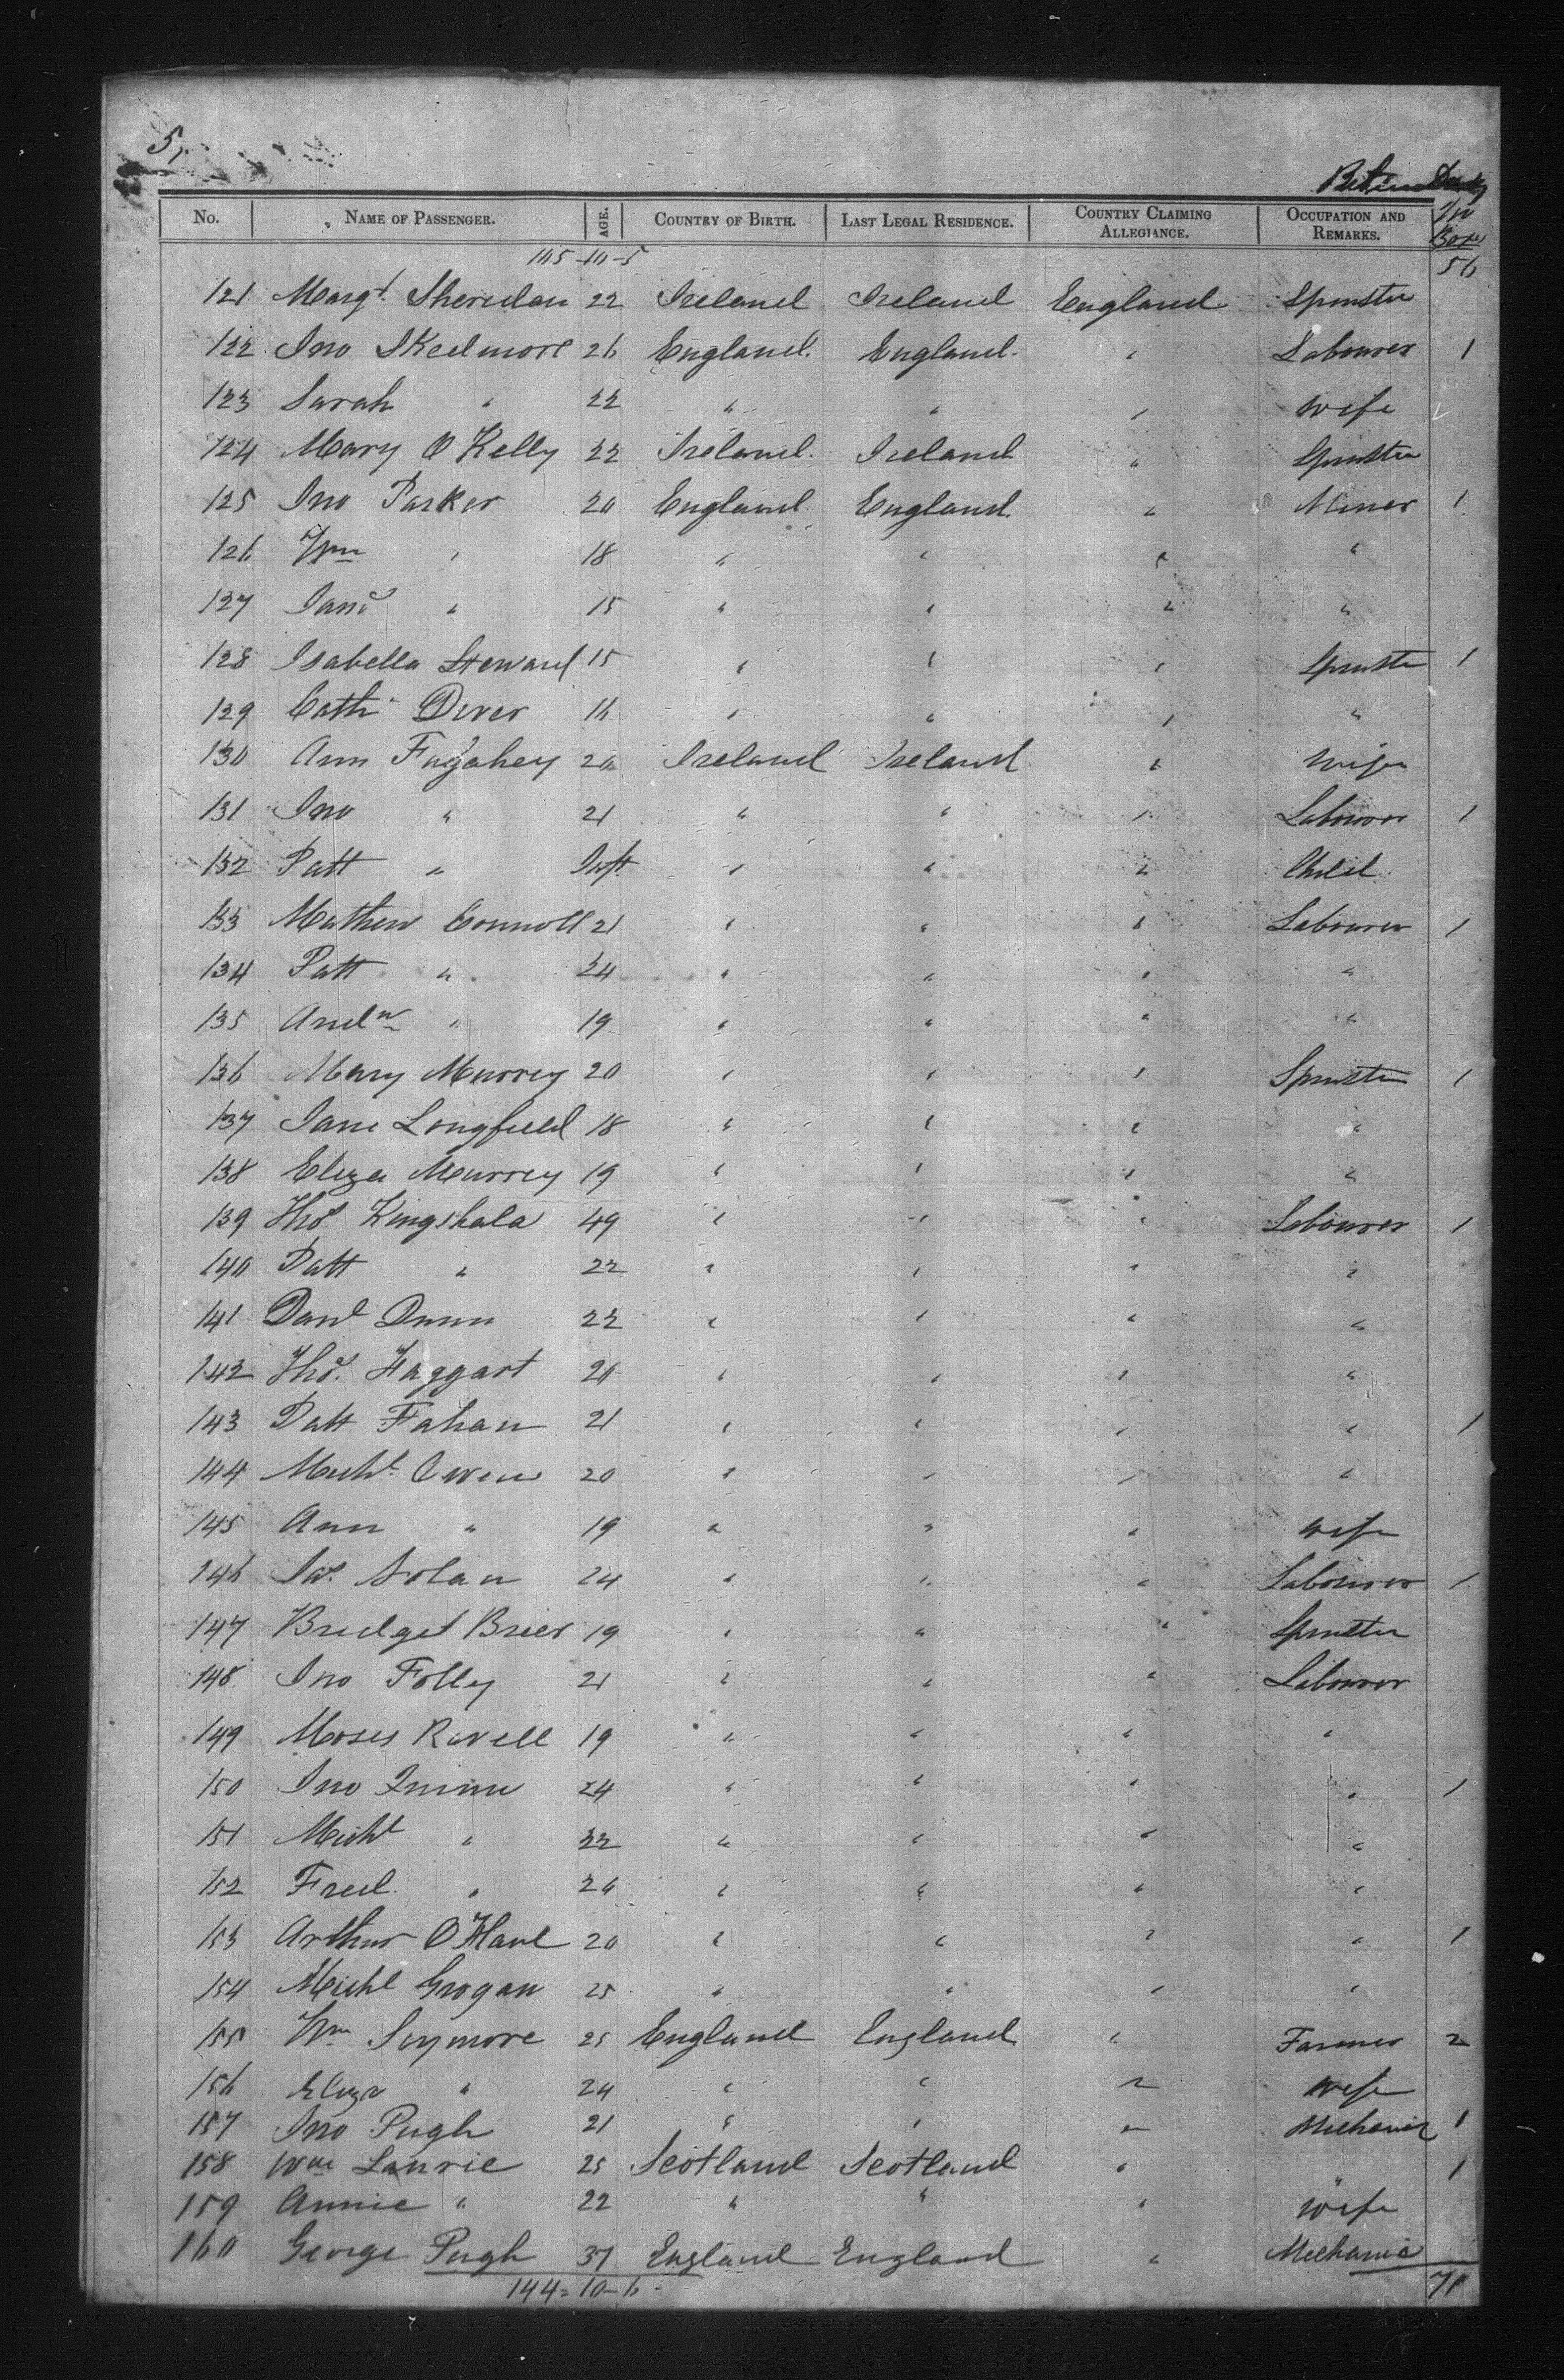 5,
In
Box
No. NAME OF PASSENGER. AGE. COUNTRY OF BIRTH. LAST LEGAL RESIDENCE. COUNTRY CLAIMING ALLEGIANCE. OCCUPATION AND REMARKS.
105-10-5 56
121 Margt. Sheridan 22 Ireland Ireland England Spinster
122 Jno Skedmore 26 England England " Labourer 1
123 Sarah " 22 " " " Wife
124 Mary O Kelly 22 Ireland Ireland " Spinster
125 Jno Parker 20 England England " Miner 1
126 Wm " 18 " " " "
127 " 15 " " " "
128 Isabella Steward 15 " " " Spinster 1
129 Cath Diver 16 " " " "
130 Ann 20 Ireland Ireland " Wife
131 Jno " 21 " " " Labourer 1
132 Patt " Inft " " " Child
133 Mathew Connoll 21 " " " Labourer 1
134 Patt " 24 " " " "
135 Andw " 19 " " " "
136 Mary Murrey 20 " " " Spinster 1
137 Jane Longfield 18 " " " "
138 Eliza Murrey 19 " " " "
139 Thos Kingshala 49 " " " Labourer 1
140 Patt " 22 " " " "
141 Danl Dunn 22 " " " "
142 Thos. Haggart 20 " " " "
143 Patt Fahan 21 " " " " 1
144 Michl. Owens 20 " " " "
145 Ann " 19 " " " Wife
146 Jas. Nolan 24 " " " Labourer 1
147 Bridget Brier 19 " " " Spinster
148 Jno Folly 21 " " " Labourer
149 Moses Ravell 19 " " " "
150 Jno Quinn 24 " " " " 1
151 Michl " 22 " " " "
152 Fred. " 20 " " " "
153 Arthur O'Hare 20 " " " " 1
154 Michl Grogan 25 " " " "
155 Wm Seymore 25 England England " Farmer 2
156 Eliza " 24 " " " Wife
157 Jno Pugh 21 " " " Mechanic 1
158 Wm Laurie 25 Scotland Scotland " " 1
159 Annie " 22 " " " Wife
160 George Pugh 37 England England " Mechanic
144=10-6- 71